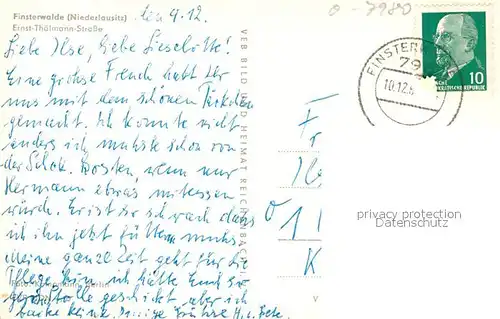 Finsterwalde (Niederlausitz)
Ernst-Thälmann-Straße
den 9.12.
Liebe Ilse, Liebe Lieselotte!
Eine grosse Freude habt Ihr
uns mit dem schönen Päckchen
gemacht. Ich konnte nicht
anders ich musste schon von
der Schok. kosten, wenn nur
Hermann etwas mitessen
würde. Er ist so schwach dass
ich ihn jetzt füttern muss.
Meine ganze Zeit geht für die
Pflege hin, ich hätte Euch so
geschickt, aber ich
keine. Grüsse H. u.
VEB BILD UND HEIMAT REICHENBACH
FINSTERWALDE
79
10.12.
10
DEUTSCHE DEMOKRATISCHE REPUBLIK
privacy protection
Datenschutz
V